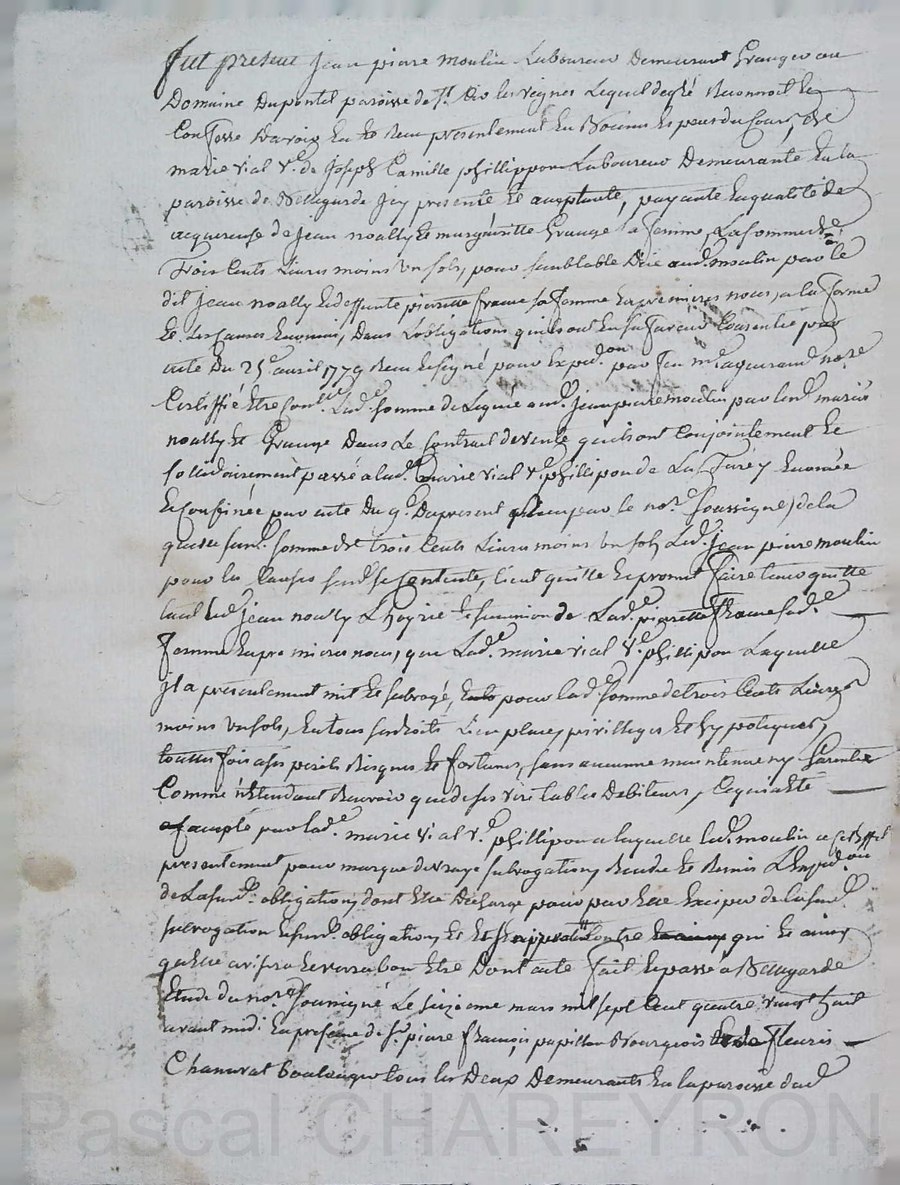 fut présent Jean piere moulin Laboureur Demeurant Granger au
Domaine Dupontel paroisse de St Cir les vignes Lequel de gré Reconnoit Et
Confesse avoir Eu Et Reçu présentement En Espèces et peus du Cours, de
marie vial ve de Joseph Camille phillippon Laboureur Demeurante En la
paroisse de Bellegarde Icy presente Et acceptante, payante En qualité de
acquereuse de Jean noally Et margueritte Grange sa femme, La somme de
Trois Cents Livres moins un sols, pour semblable Deüe aud. moulin par le
dit Jean noally Et deffunte pierrette frane sa femme En premieres noces, a la forme
Et Les Causes Enoncés, Dans L'obligation qu'ils ont En sa faveur Consentie par
acte Du 25e avril 1779 Reçu Et signé pour Expedon par feu me aguiraud nore
Certiffié Etre Conlle Lade somme deleguée aud. Jean piere moulin par led. mariés
noally Et Grange Dans Le Contrat de vente qu'ils ont Conjointement Et
sollidairement passé a lad. marie vial ve phillipon de La Terre y Enoncée
Et Confinée par acte Du 9e Du present reçu par le nore soussigné, de la
quelle susd. somme de trois Cents Livres moins un sols Led. Jean piere moulin
pour les Causes susd. se Contente, tient quitte Et promet faire tenir quitte
tant led. Jean noally L'hoyrie Et succession de Lade pierrette frane sade
femme En premieres noces, que Lade marie vial ve phillipon Laquelle
il a présentement mis Et subrogé, pour lade somme de trois Cents Livres
moins un sols, En tous ses droits Lieu place, privilleges Et hypoteques,
touttes fois a ses perils Risques Et fortunes, sans aucune maintenue ny Garentie
Comme n'Etendant Recevoir que de ses veritables Debiteurs, Ce qui a Eté
accepté par lade marie vial ve phillipon a laquelle led. moulin a Cet Effet
presentement pour marque de vraye subrogation, Rendu Et Remis L'Expedon
de La susd. obligation, dont Elle Decharge pour par Elle Exciper de la susd.
subrogation Et susd. obligation, Et Contre qui Et ainsi
qu'elle avisera Et verra bon Etre Dont acte fait Et passé a Bellegarde
Etude du nore soussigné Le seizieme mars mil sept Cent quatre vingt huit
avant midi En presence de sr piere François papillon Bourgeois Et de Fleuris
Chanavat boulanger tous les Deux Demeurants En la paroisse dud
Pascal CHAREYRON